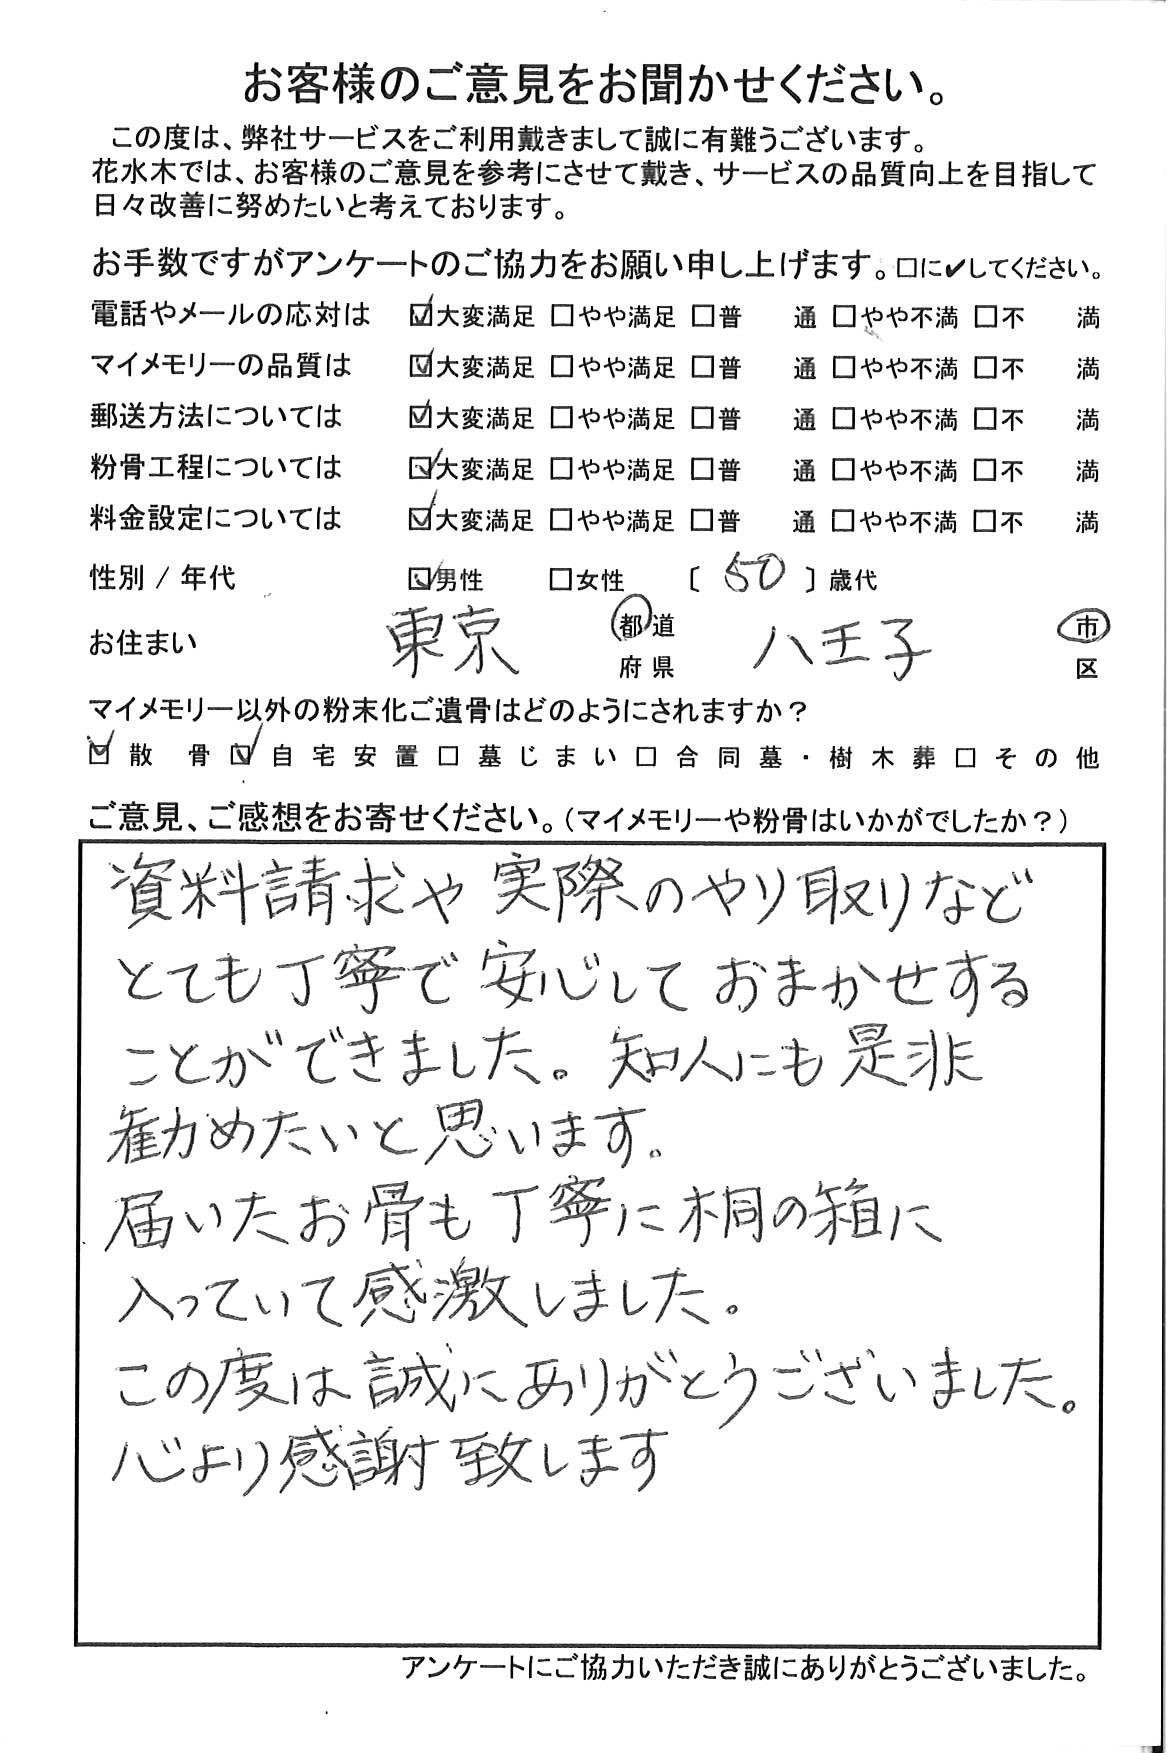 お客様のご意見をお聞かせください。
この度は、弊社サービスをご利用戴きまして誠に有難うございます。
花水木では、お客様のご意見を参考にさせて戴き、サービスの品質向上を目指して
日々改善に努めたいと考えております。
お手数ですがアンケートのご協力をお願い申し上げます。□に✔してください。
電話やメールの応対は ☑大変満足 □やや満足 □普 通 □やや不満 □不 満
マイメモリーの品質は ☑大変満足 □やや満足 □普 通 □やや不満 □不 満
郵送方法については ☑大変満足 □やや満足 □普 通 □やや不満 □不 満
粉骨工程については ☑大変満足 □やや満足 □普 通 □やや不満 □不 満
料金設定については ☑大変満足 □やや満足 □普 通 □やや不満 □不 満
性別 / 年代 ☑男性 □女性 〔 50 〕歳代
お住まい 東京 都道府県 八王子 市区
マイメモリー以外の粉末化ご遺骨はどのようにされますか？
☑散 骨 ☑自宅安置 □墓じまい □合同墓・樹木葬 □その他
ご意見、ご感想をお寄せください。（マイメモリーや粉骨はいかがでしたか？）
資料請求や実際のやり取りなど
とても丁寧で安心しておまかせする
ことができました。知人にも是非
勧めたいと思います。
届いたお骨も丁寧に桐の箱に
入っていて感激しました。
この度は誠にありがとうございました。
心より感謝致します
アンケートにご協力いただき誠にありがとうございました。